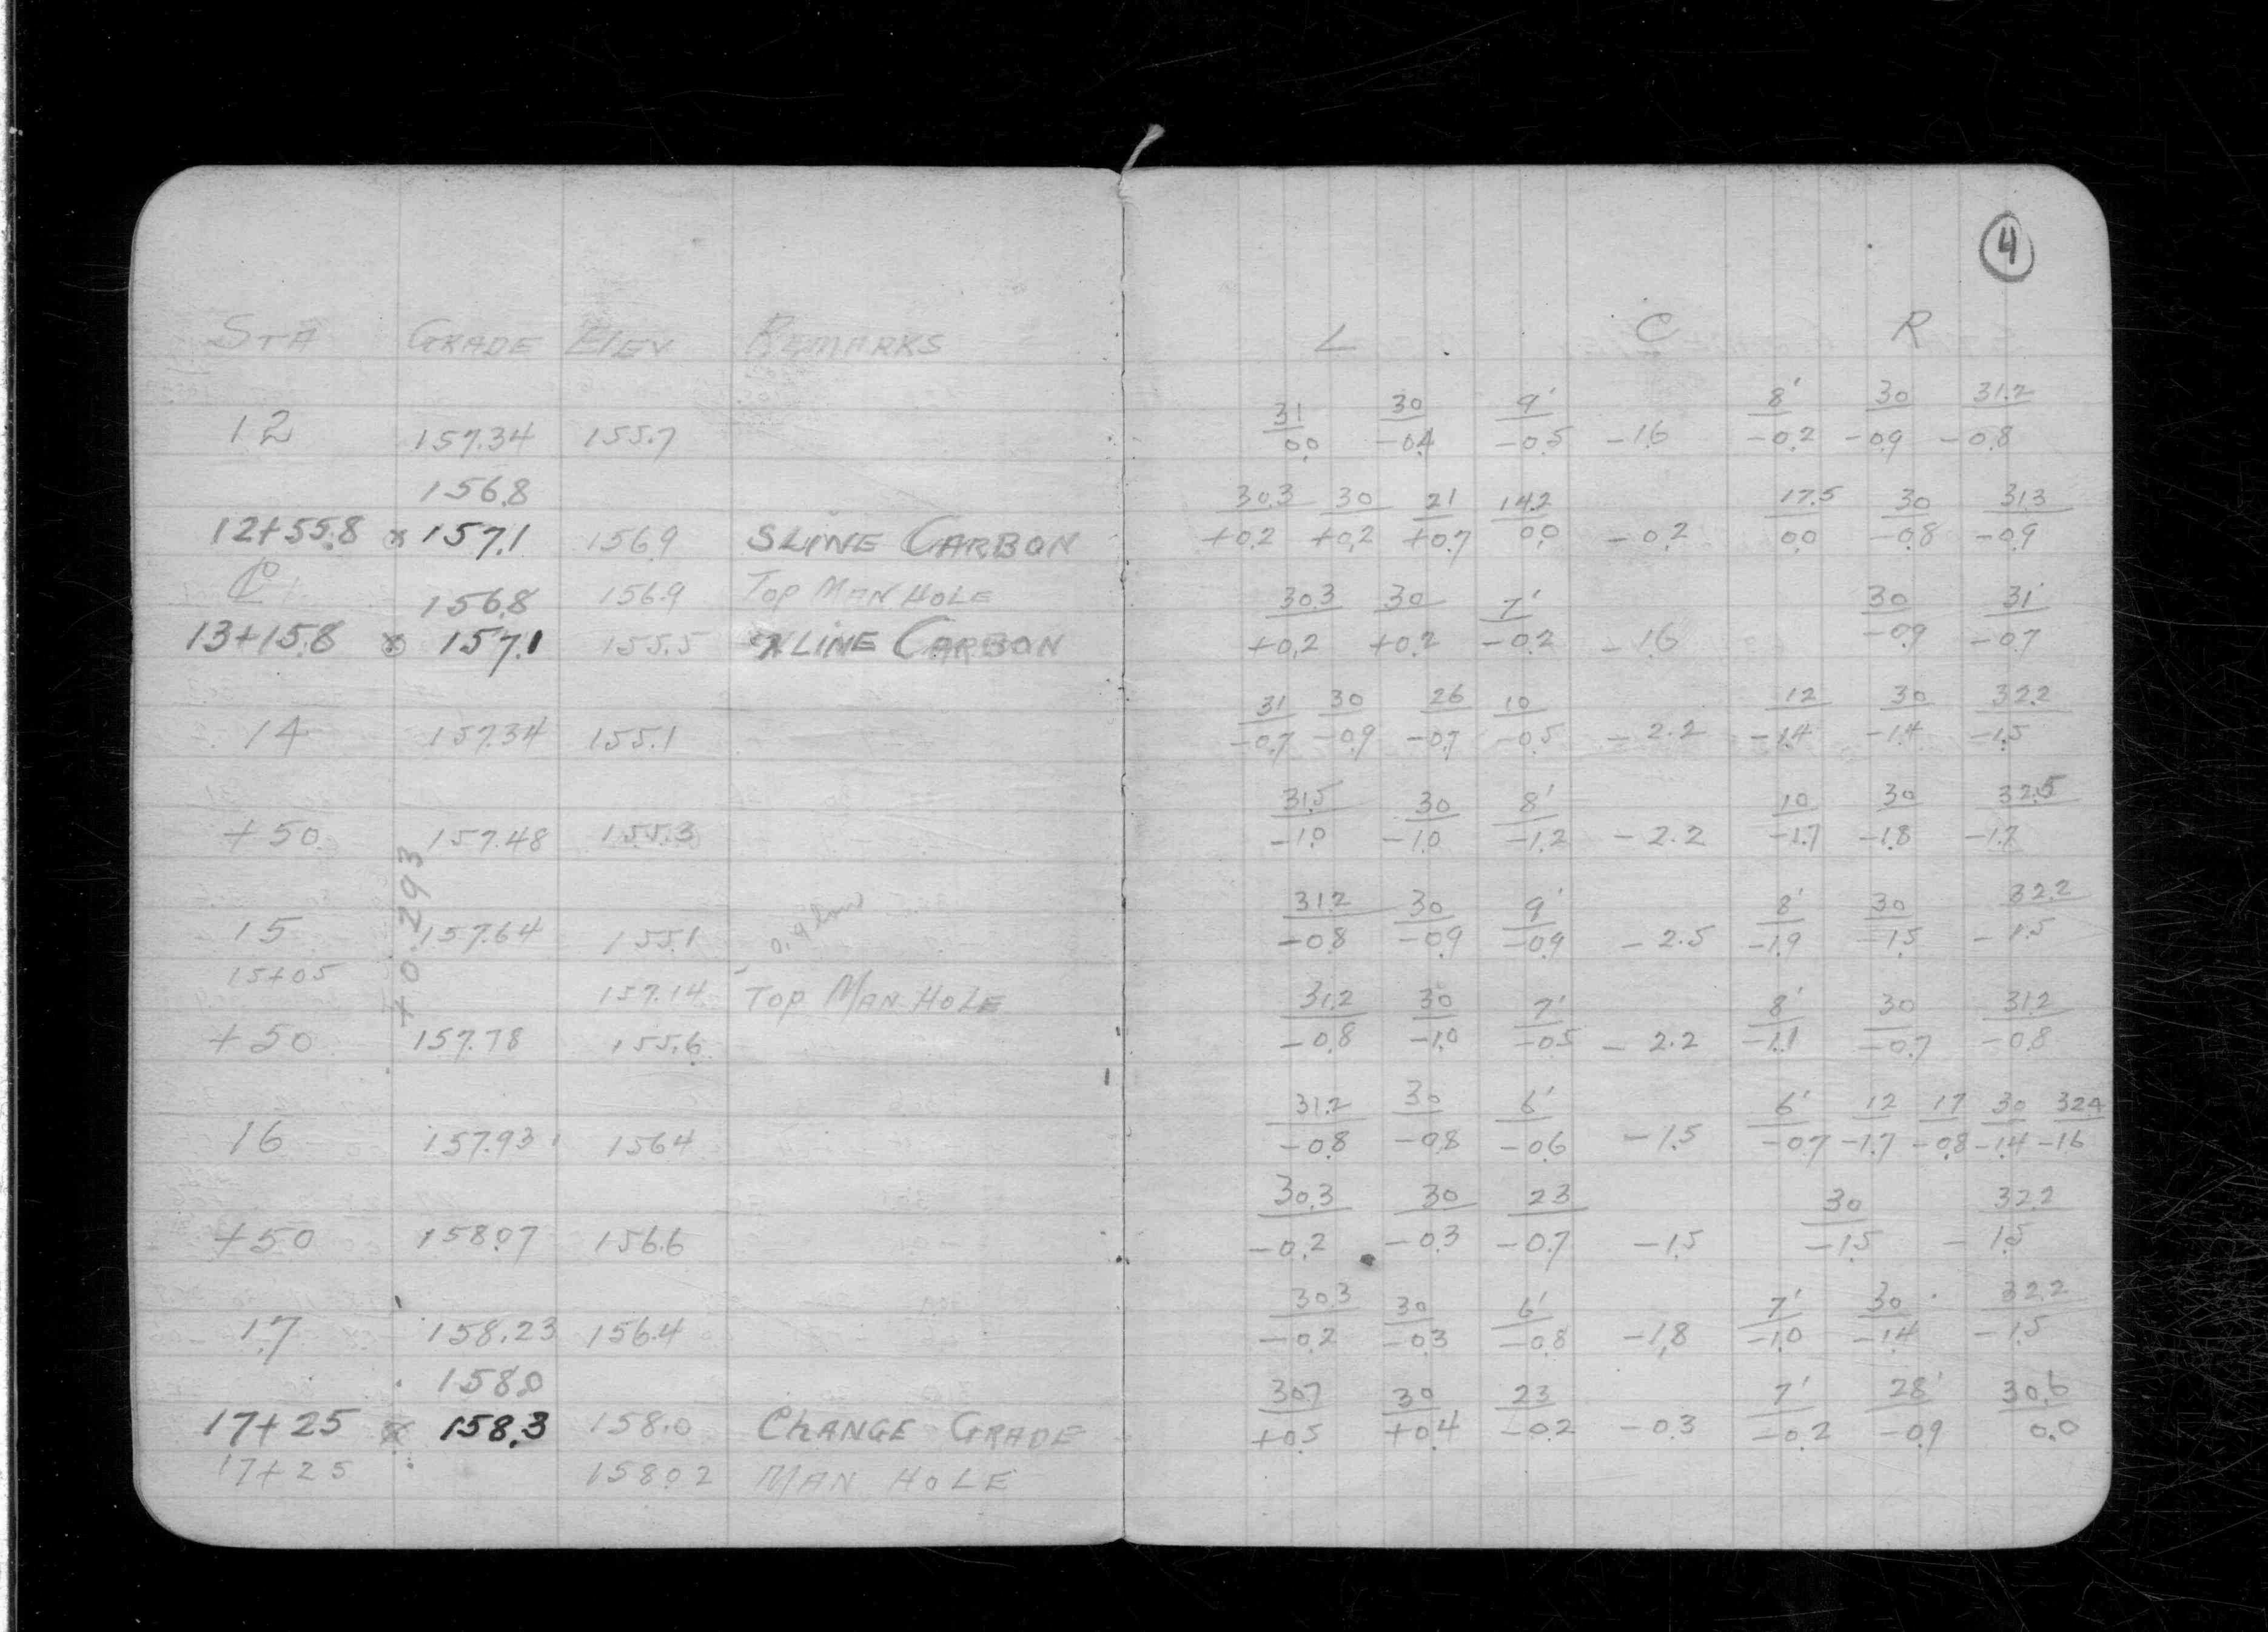 4
STA GRADE ELEV REMARKS L C R
31 30 9' 8' 30 31.2
12 157.34 155.7 0.0 -0.4 -0.5 -1.6 -0.2 -0.9 -0.8
156.8 30.3 30 21 14.2 17.5 30 31.3
12+55.8 x 157.1 156.9 SLINE CARBON +0.2 +0.2 +0.7 0.0 -0.2 0.0 -0.8 -0.9
℄ 156.8 156.9 TOP MAN HOLE 30.3 30 7' 30 31
13+15.8 x 157.1 155.5 NLINE CARBON +0.2 +0.2 -0.2 -1.6 -0.9 -0.7
31 30 26 10 12 30 32.2
14 157.34 155.1 -0.7 -0.9 -0.7 -0.5 -2.2 -1.4 -1.4 -1.5
31.5 30 8' 10 30 32.5
+50 157.48 155.3 -1.0 -1.0 -1.2 -2.2 -1.7 -1.8 -1.7
+0.293
31.2 30 9' 8' 30 32.2
15 157.64 155.1 0.9 low -0.8 -0.9 -0.9 -2.5 -1.9 -1.5 -1.5
15+05 157.14 TOP MAN HOLE 31.2 30 7' 8' 30 31.2
+50 157.78 155.6 -0.8 -1.0 -0.5 -2.2 -1.1 -0.7 -0.8
31.2 30 6' 6' 12 17 30 32.4
16 157.93 156.4 -0.8 -0.8 -0.6 -1.5 -0.7 -1.7 -0.8 -1.4 -1.6
30.3 30 23 30 32.2
+50 158.07 156.6 -0.2 -0.3 -0.7 -1.5 -1.5 -1.5
30.3 30 6' 7' 30 32.2
17 158.23 156.4 -0.2 -0.3 -0.8 -1.8 -1.0 -1.4 -1.5
158.0 30.7 30 23 7' 28' 30.6
17+25 x 158.3 158.0 CHANGE GRADE +0.5 +0.4 -0.2 -0.3 -0.2 -0.9 0.0
17+25 158.02 MAN HOLE